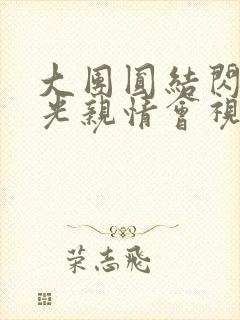 大團圓結閃
光親情會視
荣志飛